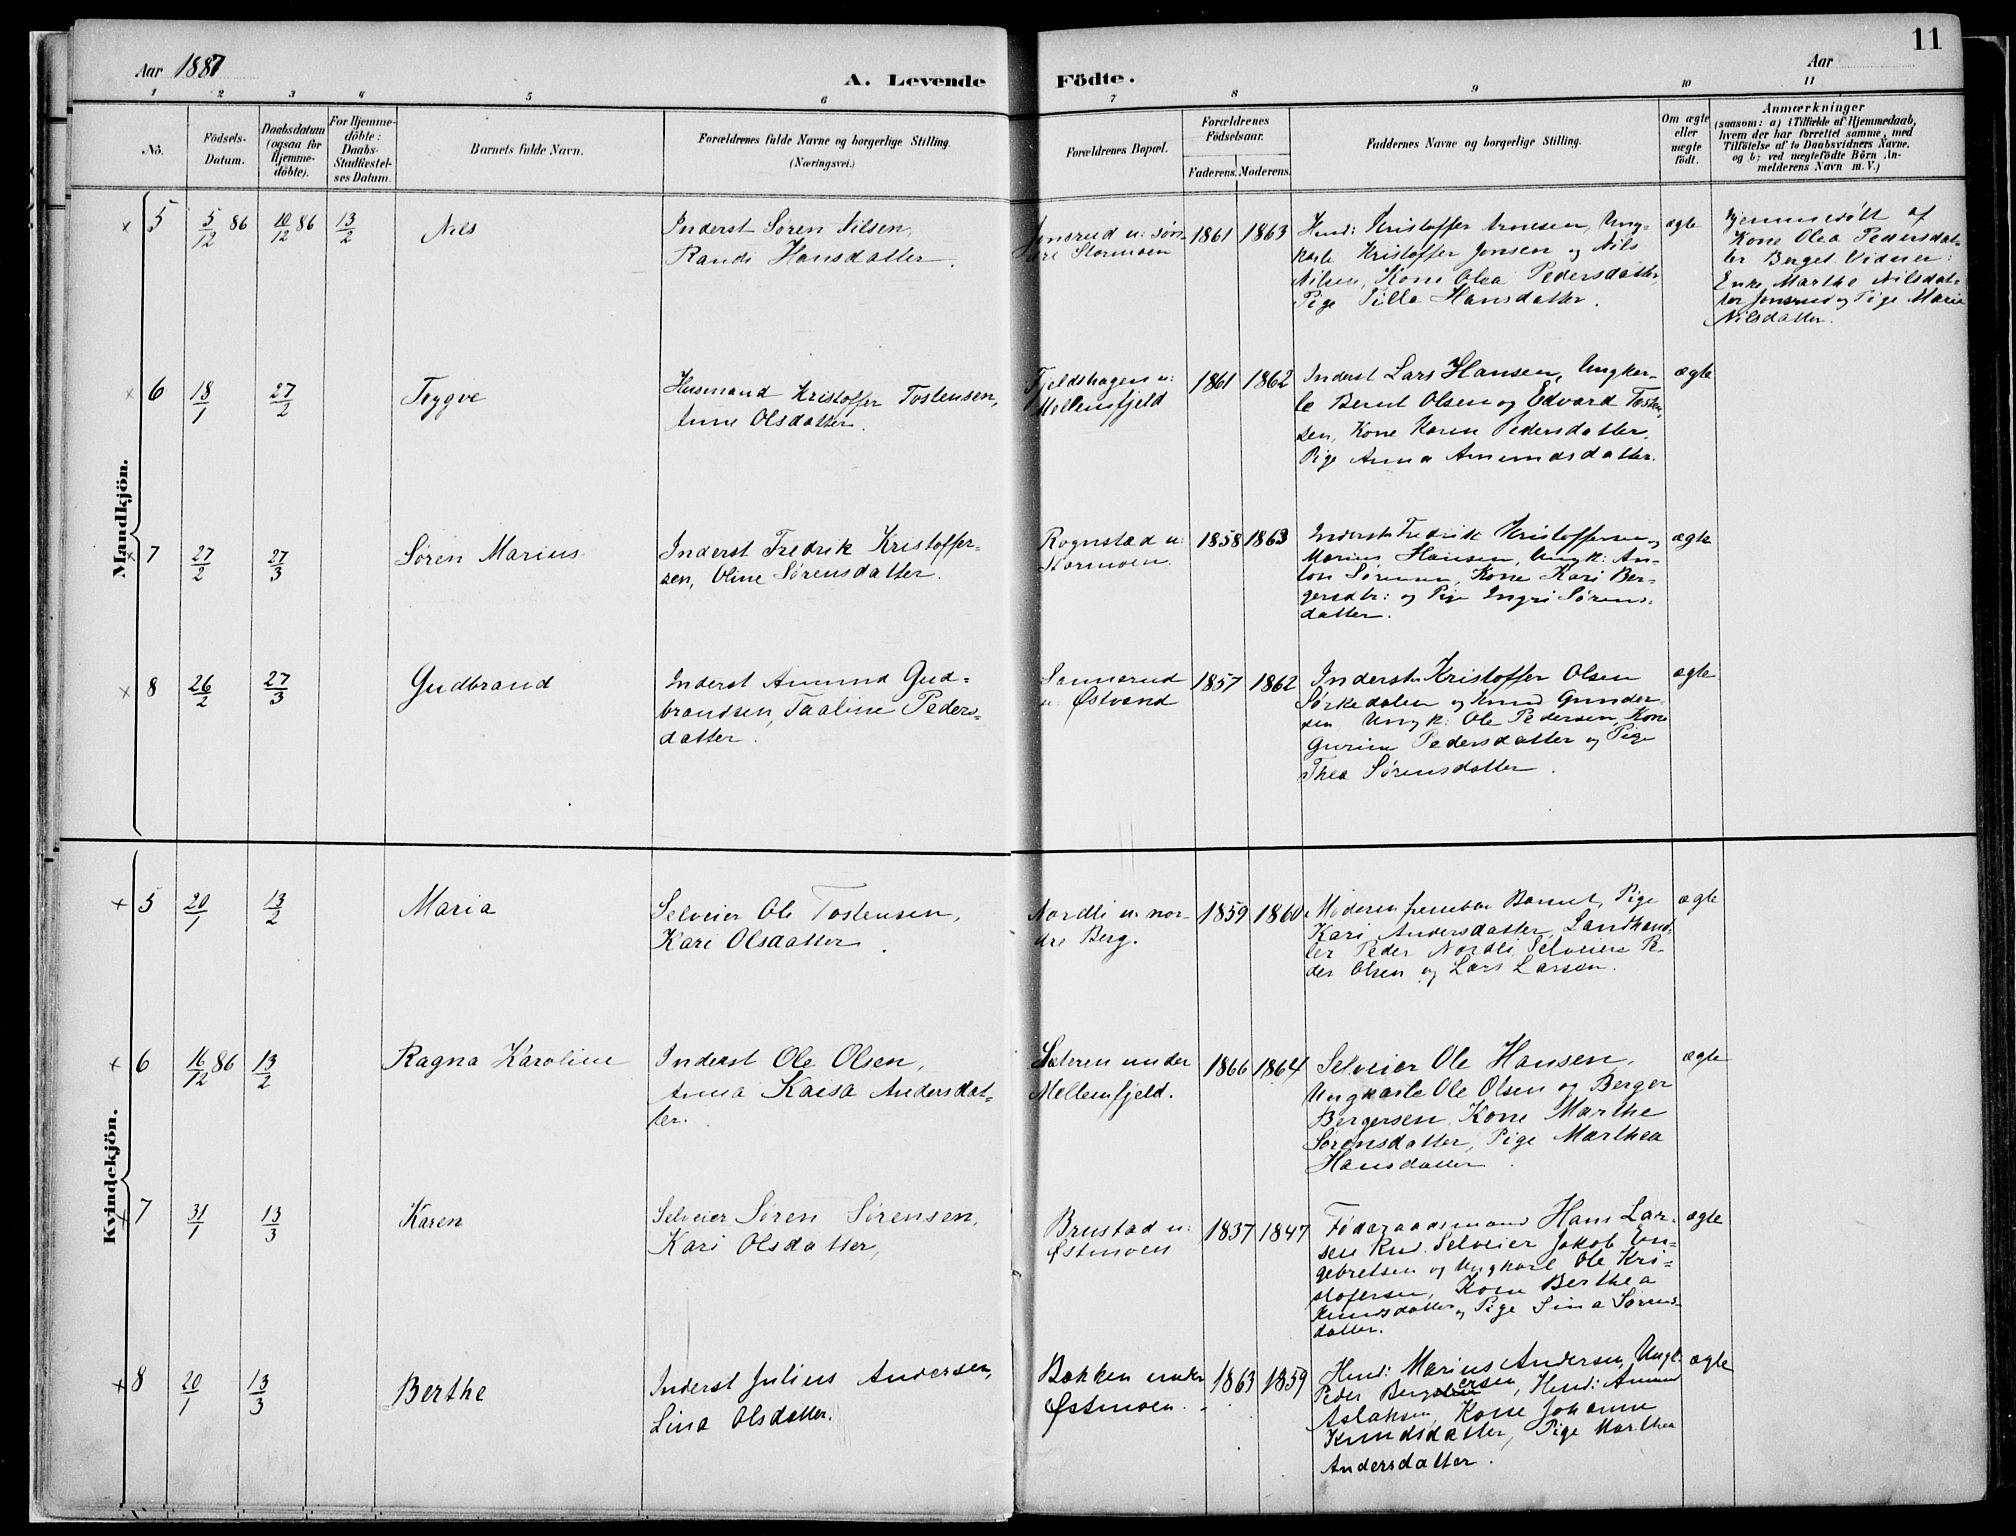 Aar 1887
A. Levende Födte.
Aar
11
1 2 3 4 5 6 7 8 9 10 11
No.
Födsels-
Datum.
Daabsdatum
(ogsaa for
Hjemme-
döbte).
For Hjemme-
döbte:
Daabs-
Stadfæstel-
ses Datum.
Barnets fulde Navn.
Forældrenes fulde Navne og borgerlige Stilling
(Næringsvei.)
Forældrenes Bopæl.
Forældrenes
Födselsaar.
Faderens. Moderens.
Faddernes Navne og borgerlige Stilling.
Om ægte
eller
uægte
födt.
Anmærkninger
(saasom: a) i Tilfælde af Hjemmedaab,
hvem der har forrettet samme, med
Tilföielse af to Daabsvidners Navne,
og b; ved uægtefödte Börn An-
melderens Navn m. V.)
Mandkjön.
× 5 5/12 86 10/12 86 13/2 Nils
Inderst Søren Nilsen,
Randi Hansdatter.
Jonsrud u: søn-
dre Stormoen
1861 1863
Husm: Kristoffer Arnesen, Ung-
karle Kristoffer Jonsen og Nils
Nilsen, Kone Olea Pedersdatter,
Pige Pilla Hansdatter.
ægte
Hjemmedøbt af
Kone Olea Pedersdat-
ter Berget. Vidner:
Enke Marthe Nilsdat-
ter Jonsrud og Pige Marie
Nilsdatter.
× 6 18/1 27/2 Trygve
Husmand Kristoffer Tostensen,
Anne Olsdatter.
Fjeldshagen u:
Mellemfjeld
1861 1862
Inderst Lars Hansen, Ungkar-
le Bernt Olsen og Edvard Tosten-
sen, Kone Karen Pedersdatter,
Pige Anna Amundsdatter.
ægte
× 7 27/2 27/3 Søren Marius
Inderst Fredrik Kristoffer-
sen, Oline Sørensdatter.
Rognstad u:
Stormoen.
1858 1863
Inderst: Fredrik Kristoffersen og
Marius Hansen, Ungk: An-
ton Sørensen, Kone Kari Ber-
gersdtr: og Pige Ingri Sørens-
datter.
ægte
× 8 26/2 27/3 Gudbrand
Inderst Amund Gud-
brandsen, Taaline Peders-
datter.
Sannerud
u: Østvand
1857 1862
Inderst: Kristoffer Olsen
Sørkedalen og Knud Gunder-
sen Ungk: Ole Pedersen, Kone
Gurine Pedersdatter og Pige
Thea Sørensdatter.
ægte
Kvindekjön.
× 5 20/1 13/2 Maria
Selveier Ole Tostensen,
Kari Olsdatter.
Nordli u: nor-
dre Berg.
1859 1860
Moderen frembar Barnet, Pige
Kari Andersdatter, Landhand-
ler Peder Nordli, Selveiere Pe-
der Olsen og Lars Larsen.
ægte
× 6 16/12 86 13/2 Ragna Karoline
Inderst Ole Olsen,
Anna Kaisa Andersdat-
ter.
Sæteren under
Mellemfjeld.
1866 1864
Selveier Ole Hansen,
Ungkarle Ole Olsen og Berger
Bergersen, Kone Marthe
Sørensdatter, Pige Marthea
Hansdatter.
ægte
× 7 31/1 13/3 Karen
Selveier Søren Sørensen,
Kari Olsdatter,
Brustad u:
Østmoen
1837 1847
Føderaadsmand Hans Lar-
sen Rud, Selveier Jakob En-
gebretsen og Ungkarl Ole Kri-
stofersen, Kone Berthea
Knudsdatter og Pige Sina Sørens-
datter.
ægte
× 8 20/1 13/3 Berthe
Inderst Julius Andersen,
Lina Olsdatter.
Bakken under
Østmoen.
1863 1859
Husm: Marius Andersen, Ungk:
Peder Bergersen, Husm: Amund
Aslaksen, Kone Johanne
Knudsdatter, Pige Marthea
Andersdatter.
ægte